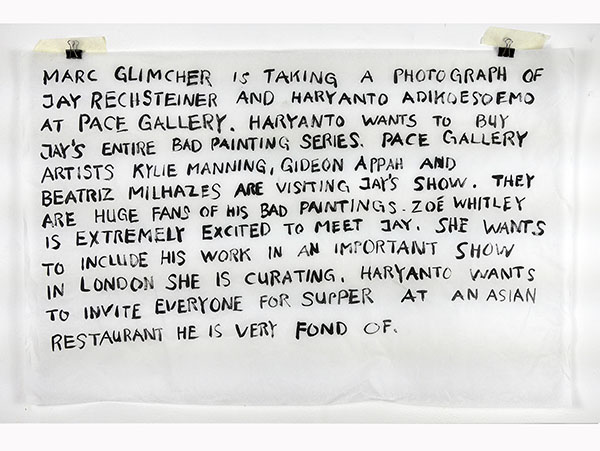 MARC GLIMCHER IS TAKING A PHOTOGRAPH OF
JAY RECHSTEINER AND HARYANTO ADIKOESOEMO
AT PACE GALLERY. HARYANTO WANTS TO BUY
JAY'S ENTIRE BAD PAINTING SERIES. PACE GALLERY
ARTISTS KYLIE MANNING, GIDEON APPAH AND
BEATRIZ MILHAZES ARE VISITING JAY'S SHOW. THEY
ARE HUGE FANS OF HIS BAD PAINTINGS. ZOÉ WHITLEY
IS EXTREMELY EXCITED TO MEET JAY. SHE WANTS
TO INCLUDE HIS WORK IN AN IMPORTANT SHOW
IN LONDON SHE IS CURATING. HARYANTO WANTS
TO INVITE EVERYONE FOR SUPPER AT AN ASIAN
RESTAURANT HE IS VERY FOND OF.